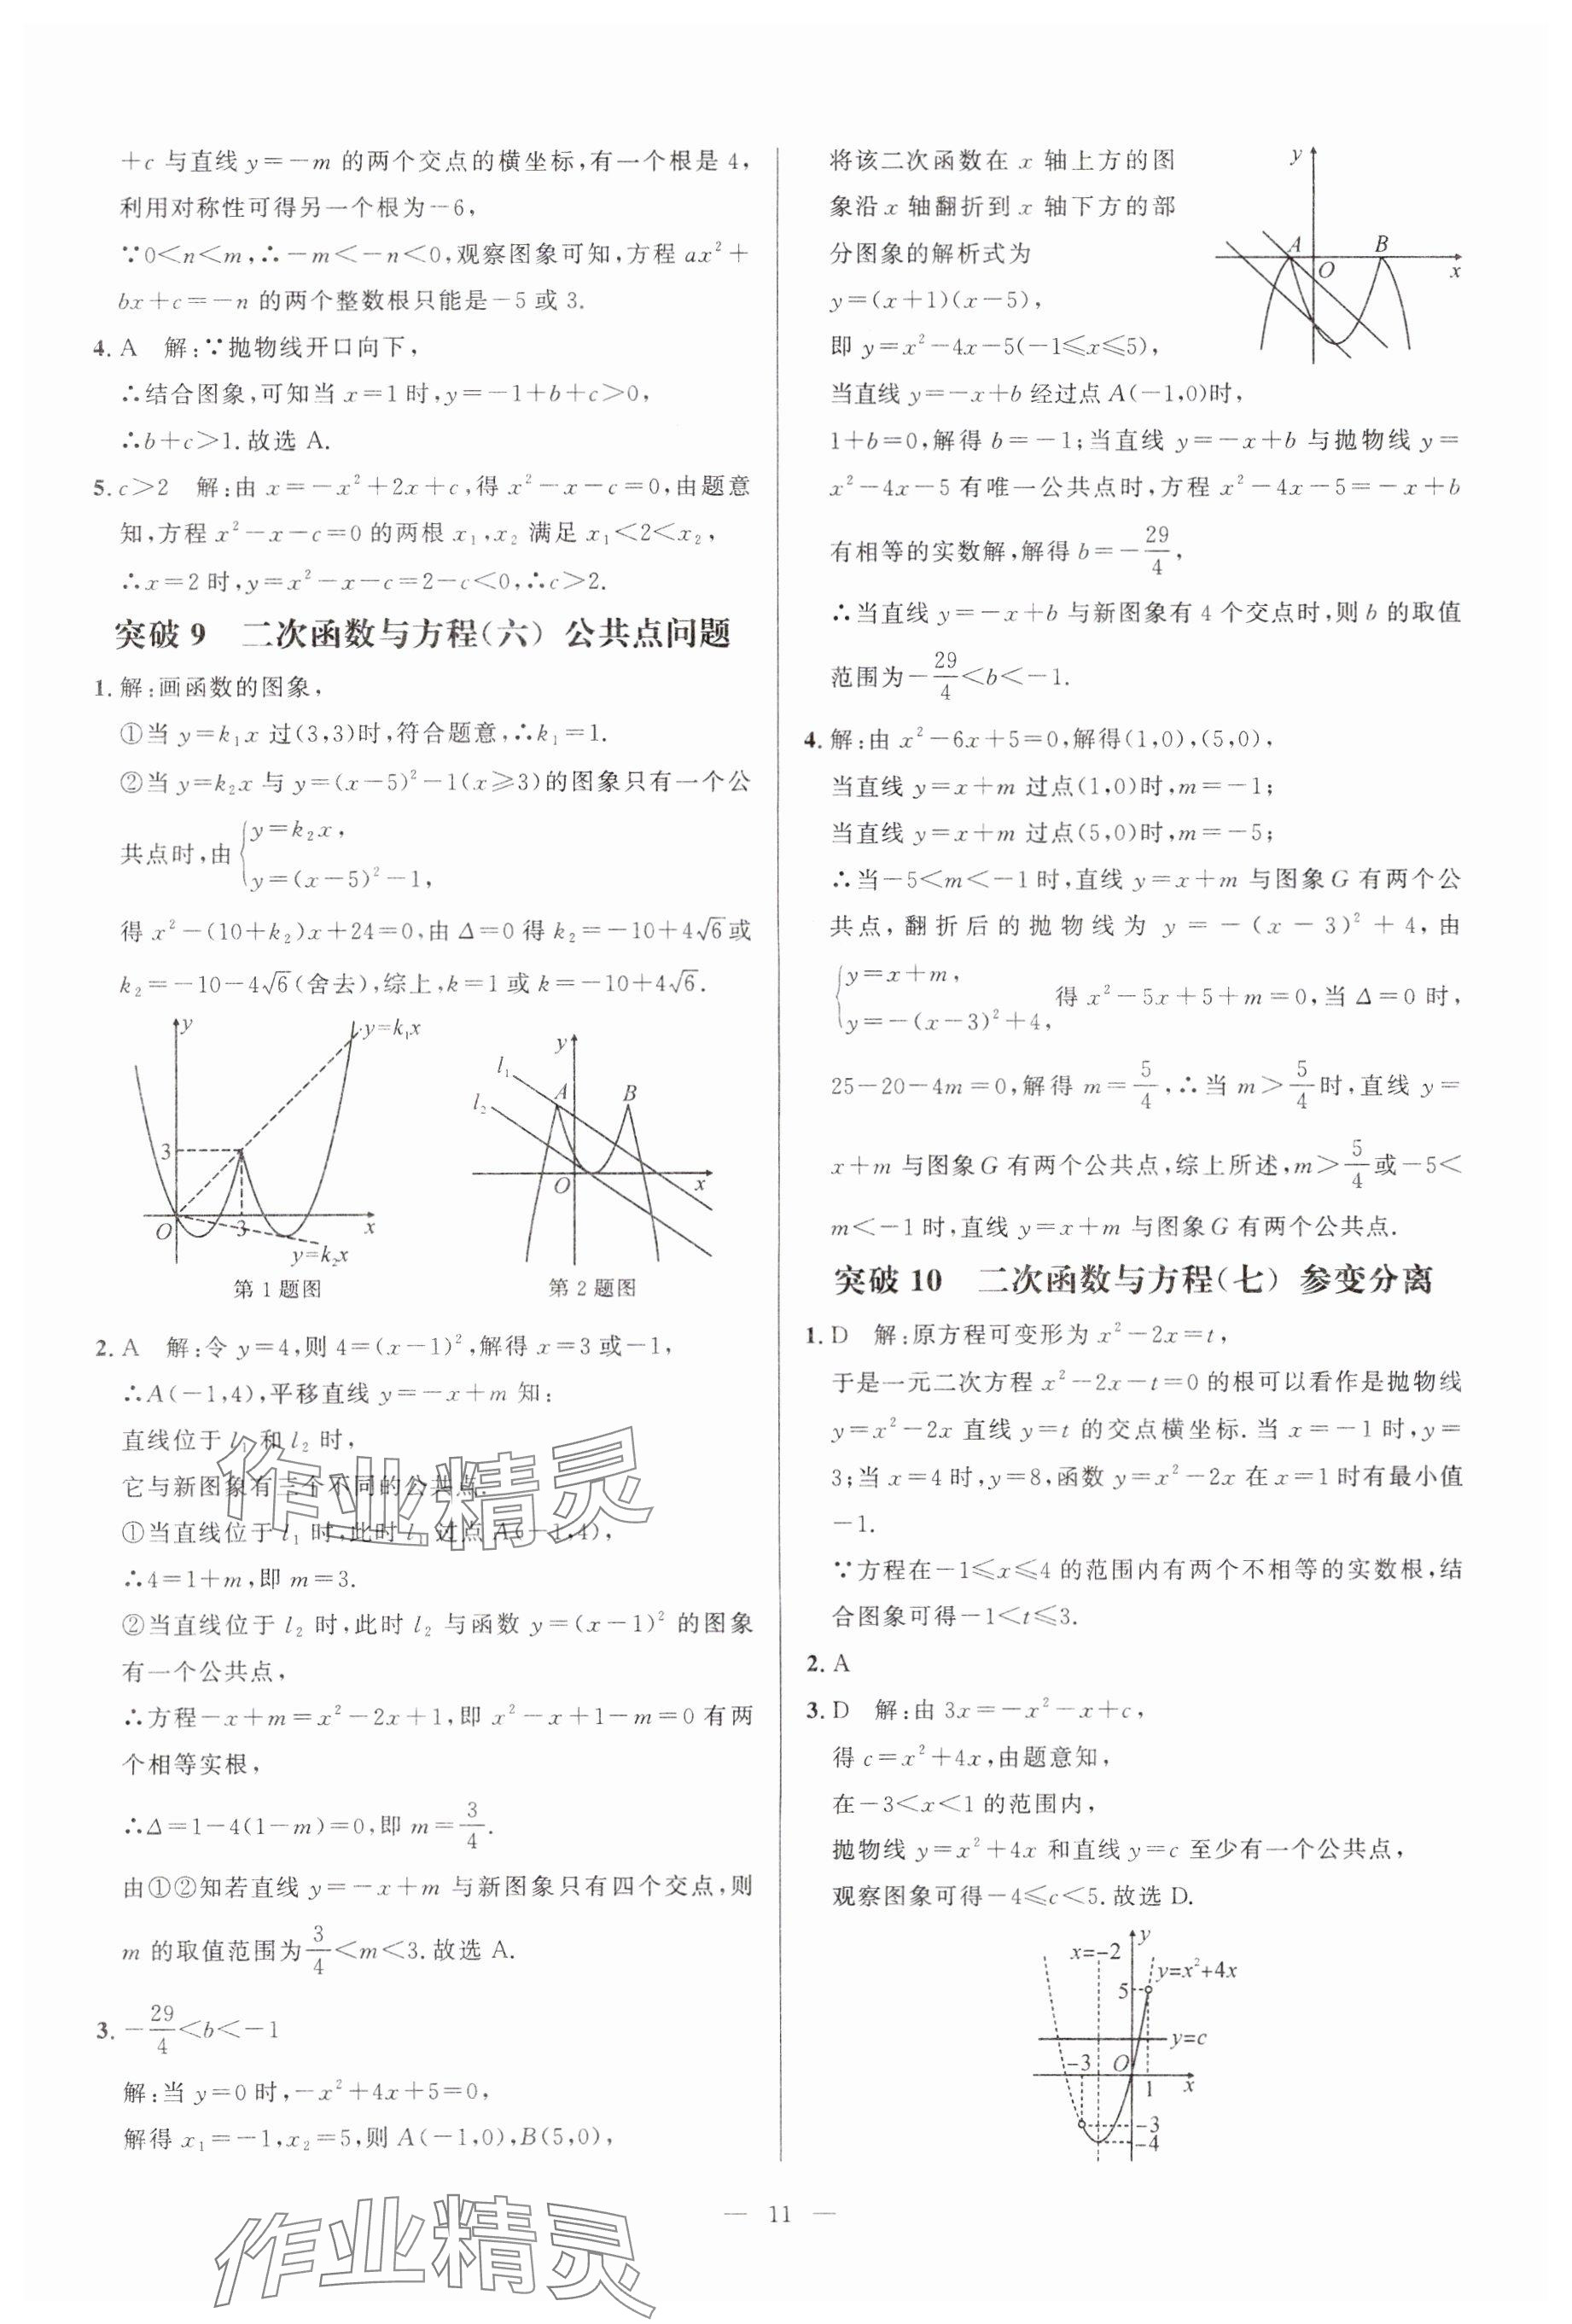 +c 与直线 y=-m 的两个交点的横坐标,有一个根是 4,
利用对称性可得另一个根为-6,
∵0<n<m,∴-m<-n<0,观察图象可知,方程 ax²+
bx+c=-n 的两个整数根只能是-5 或 3.
4. A 解:∵抛物线开口向下,
∴结合图象,可知当 x=1 时,y=-1+b+c>0,
∴b+c>1.故选 A.
5. c>2 解:由 x=-x²+2x+c,得 x²-x-c=0,由题意
知,方程 x²-x-c=0 的两根 x₁,x₂ 满足 x₁<2<x₂,
∴x=2 时,y=x²-x-c=2-c<0,∴c>2.
突破 9 二次函数与方程(六) 公共点问题
1. 解:画函数的图象,
①当 y=k₁x 过(3,3)时,符合题意,∴k₁=1.
②当 y=k₂x 与 y=(x-5)²-1(x≥3)的图象只有一个公
共点时,由{y=k₂x,
y=(x-5)²-1,
得 x²-(10+k₂)x+24=0,由 Δ=0 得 k₂=-10+4√6或
k₂=-10-4√6(舍去),综上,k=1 或 k=-10+4√6.
y
y=k₁x
3
O
3
x
y=k₂x
第 1 题图
y
l₁
l₂
A
B
O
x
第 2 题图
2. A 解:令 y=4,则 4=(x-1)²,解得 x=3 或-1,
∴A(-1,4),平移直线 y=-x+m 知:
直线位于 l₁ 和 l₂ 时,
它与新图象有三个不同的公共点.
①当直线位于 l₁ 时,此时 l₁ 过点 A(-1,4),
∴4=1+m,即 m=3.
②当直线位于 l₂ 时,此时 l₂ 与函数 y=(x-1)² 的图象
有一个公共点,
∴方程-x+m=x²-2x+1,即 x²-x+1-m=0 有两
个相等实根,
∴Δ=1-4(1-m)=0,即 m=3/4.
由①②知若直线 y=-x+m 与新图象只有四个交点,则
m 的取值范围为3/4<m<3.故选 A.
3. -29/4<b<-1
解:当 y=0 时,-x²+4x+5=0,
解得 x₁=-1,x₂=5,则 A(-1,0),B(5,0),
将该二次函数在 x 轴上方的图
象沿 x 轴翻折到 x 轴下方的部
分图象的解析式为
y=(x+1)(x-5),
即 y=x²-4x-5(-1≤x≤5),
y
A
B
O
x
当直线 y=-x+b 经过点 A(-1,0)时,
1+b=0,解得 b=-1;当直线 y=-x+b 与抛物线 y=
x²-4x-5 有唯一公共点时,方程 x²-4x-5=-x+b
有相等的实数解,解得 b=-29/4,
∴当直线 y=-x+b 与新图象有 4 个交点时,则 b 的取值
范围为-29/4<b<-1.
4. 解:由 x²-6x+5=0,解得(1,0),(5,0),
当直线 y=x+m 过点(1,0)时,m=-1;
当直线 y=x+m 过点(5,0)时,m=-5;
∴当-5<m<-1 时,直线 y=x+m 与图象 G 有两个公
共点,翻折后的抛物线为 y=-(x-3)²+4,由
{y=x+m,
y=-(x-3)²+4, 得 x²-5x+5+m=0,当 Δ=0 时,
25-20-4m=0,解得 m=5/4,∴当 m>5/4时,直线 y=
x+m 与图象 G 有两个公共点,综上所述,m>5/4或-5<
m<-1 时,直线 y=x+m 与图象 G 有两个公共点.
突破 10 二次函数与方程(七) 参变分离
1. D 解:原方程可变形为 x²-2x=t,
于是一元二次方程 x²-2x-t=0 的根可以看作是抛物线
y=x²-2x 直线 y=t 的交点横坐标.当 x=-1 时,y=
3;当 x=4 时,y=8,函数 y=x²-2x 在 x=1 时有最小值
-1.
∵方程在-1≤x≤4 的范围内有两个不相等的实数根,结
合图象可得-1<t≤3.
2. A
3. D 解:由 3x=-x²-x+c,
得 c=x²+4x,由题意知,
在-3<x<1 的范围内,
抛物线 y=x²+4x 和直线 y=c 至少有一个公共点,
观察图象可得-4≤c<5.故选 D.
x=-2
y
y=x²+4x
5
y=c
-3
O
1
x
-3
-4
作业精灵
— 11 —
作业精灵